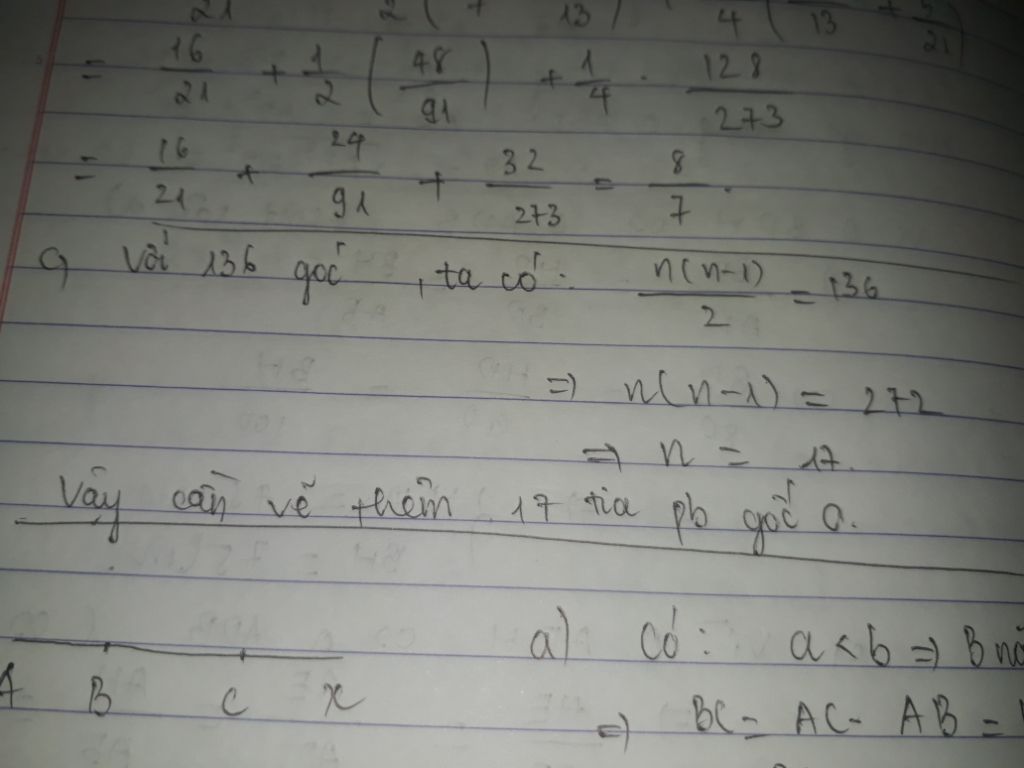 21 2 ( + 13 ) 4 ( 13 + 5/21 )
= 16/21 + 1/2 ( 48/91 ) + 1/4 . 128/273
= 16/21 + 24/91 + 32/273 = 8/7 .
c, Với 136 góc , ta có : n(n-1)/2 = 136
=> n(n-1) = 272
=> n = 17.
Vậy cần vẽ thêm 17 tia pb gốc O.
A B C x
a) Có : a < b => B nằ
=> BC = AC - AB =